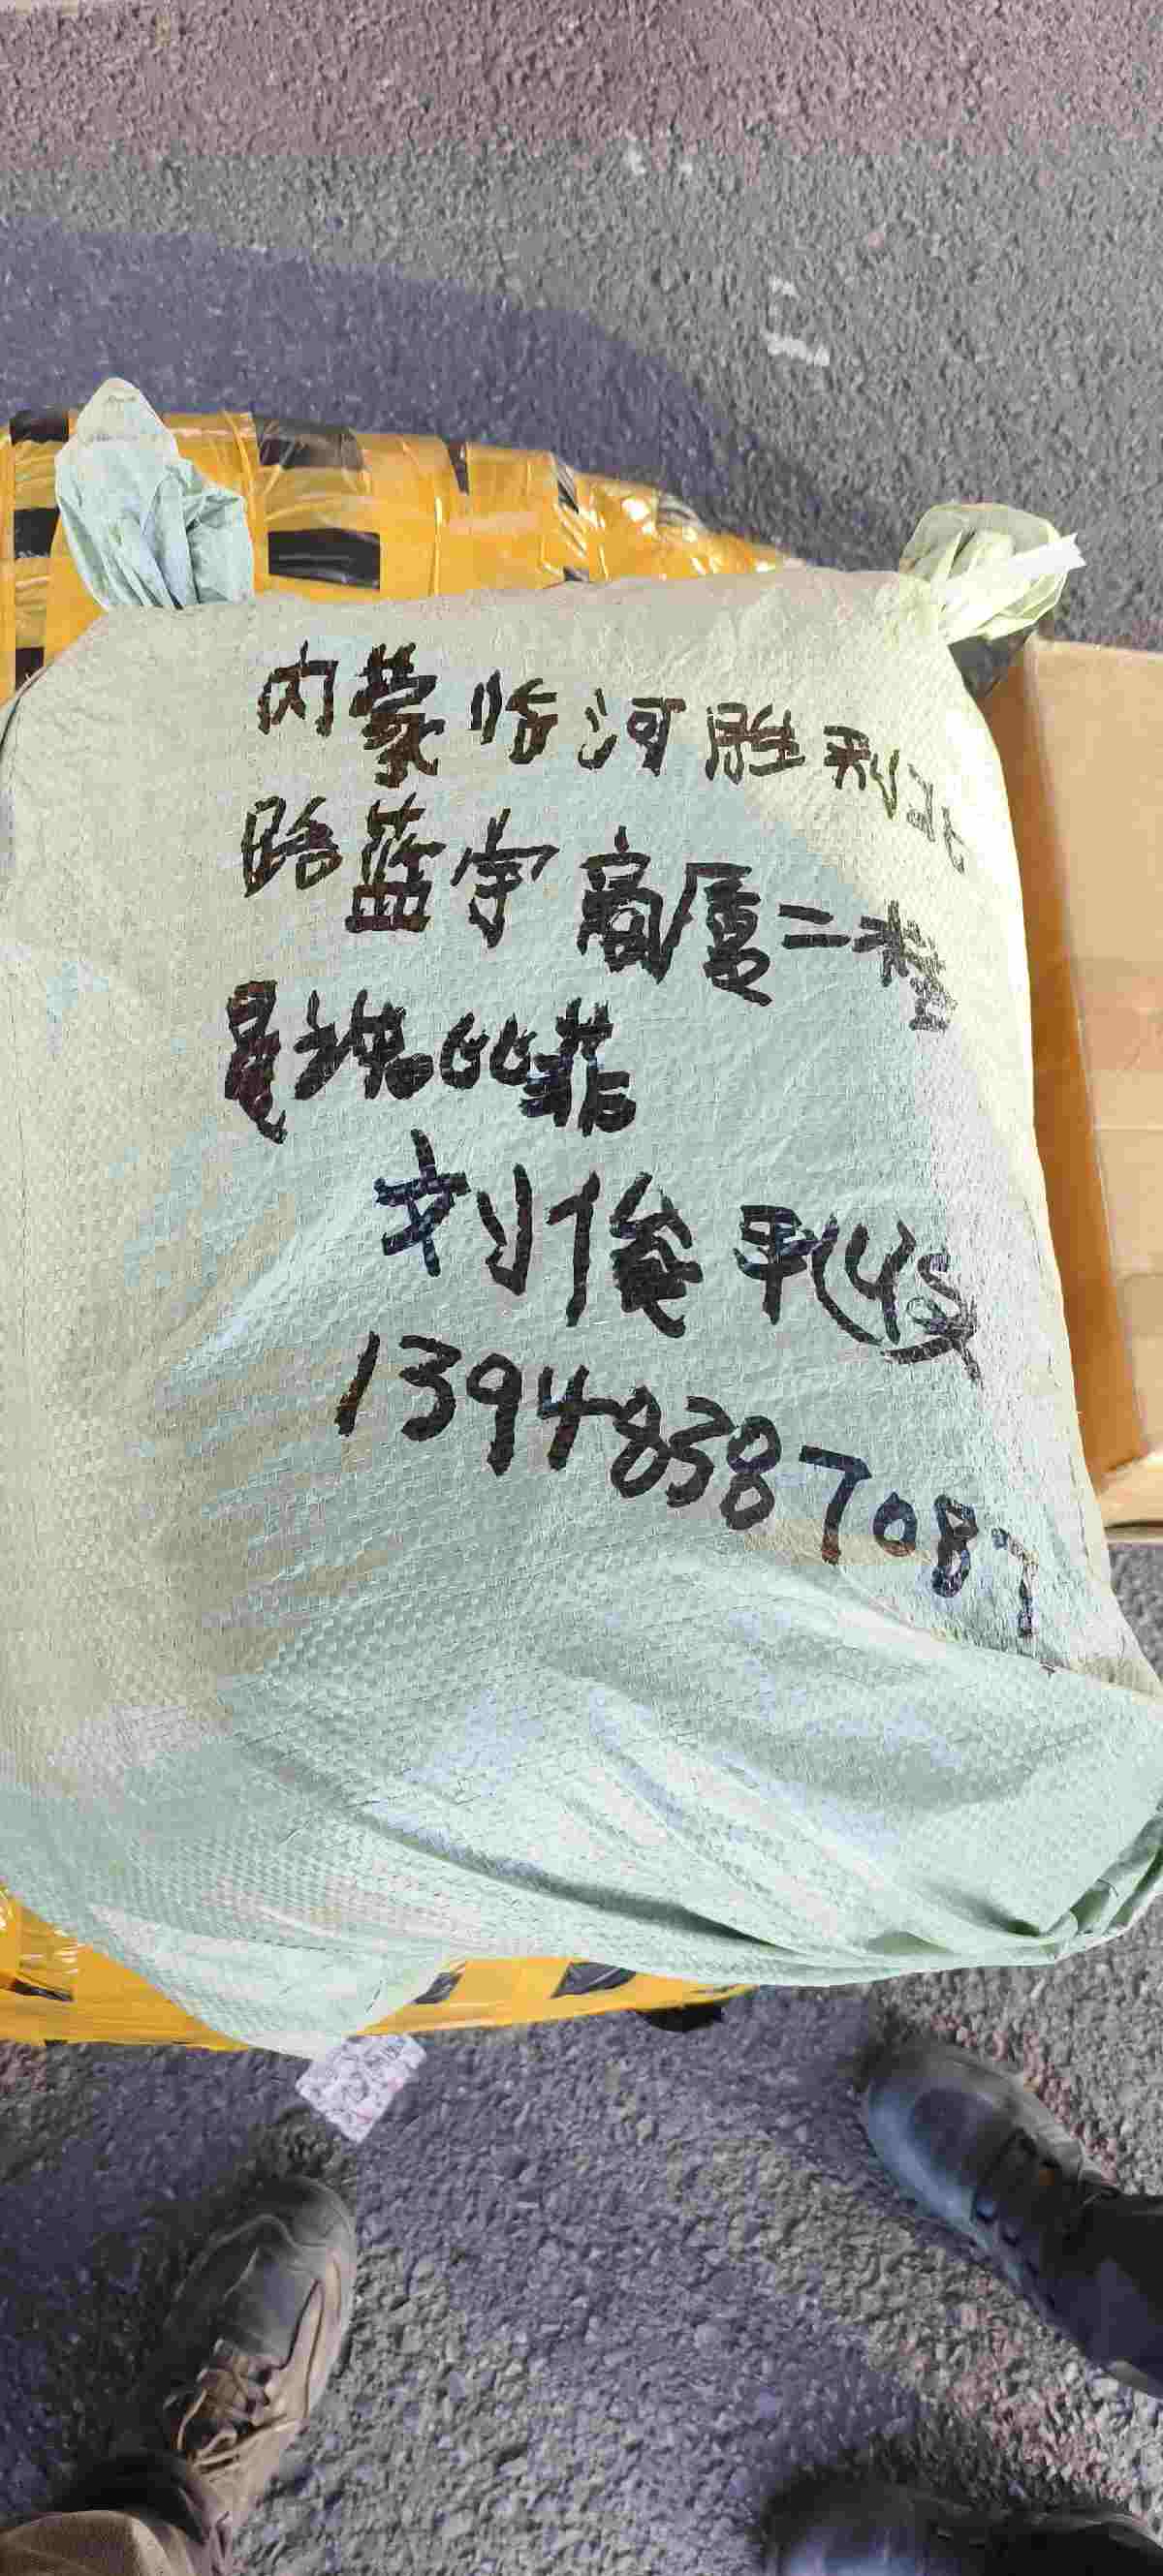 内蒙临河胜利北
路蓝宇商厦二楼
66
刘俊平(收
13948387087